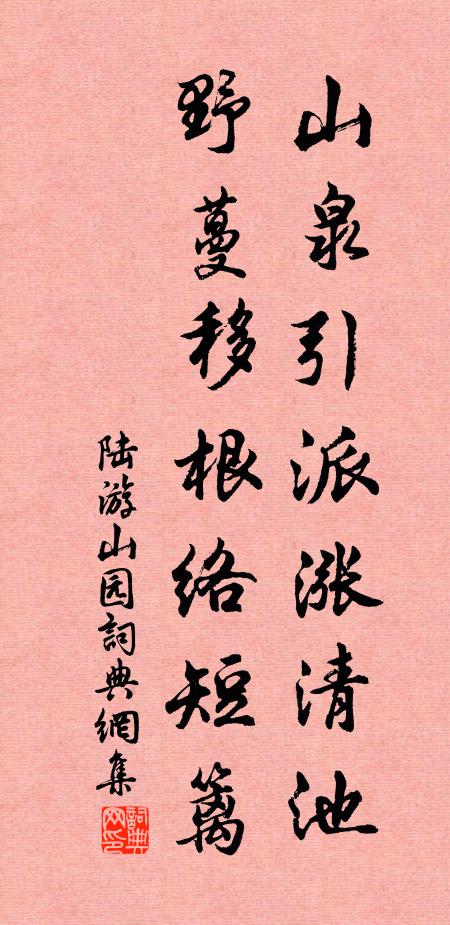 山泉引派涨清池
野蔓移根络短篱
陆游山园詞典網集
詞典网印